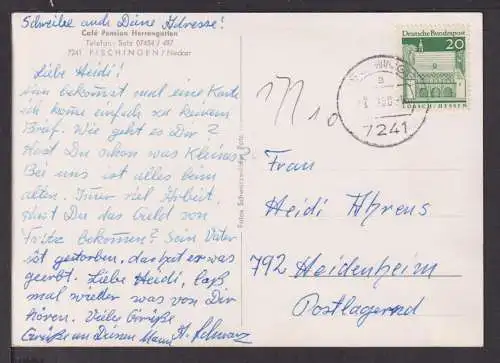 Schreibe auch Deine Adresse!
Café Pension Herrengarten
Telefon: Sulz 07454 / 497
7241 FISCHINGEN/Neckar
Liebe Heidi!
Nun bekommst mal eine Karte
ich komme einfach zu keinem
Brief. Wie geht es Dir?
Hast Du schon was Kleines?
Bei uns ist alles beim
alten. Immer viel Arbeit.
Hast Du das Geld von
Fritz bekommen? Sein Vater
ist gestorben, da hat er was
geerbt. Liebe Heidi, laß
mal wieder was von Dir
hören. Viele Grüße
Grüße an Deinen Mann
Deutsche Bundespost
20
LORSCH/HESSEN
7241
Frau
Heidi Ahrens
792 Heidenheim
Postlagernd